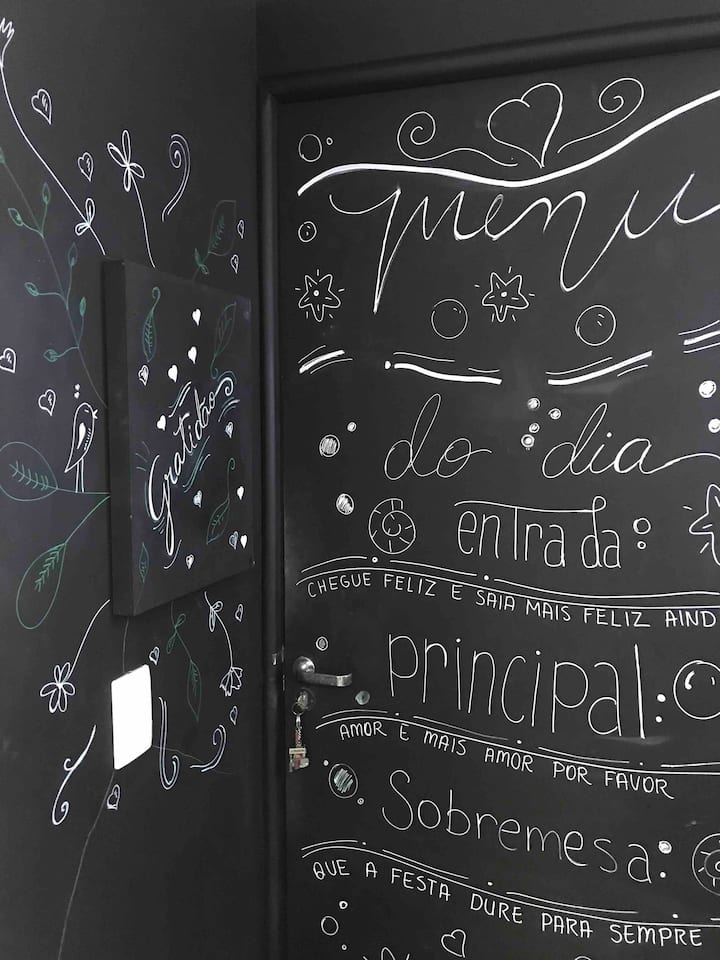 Gratidão
menu
do dia
entrada:
CHEGUE FELIZ E SAIA MAIS FELIZ AIND
principal:
AMOR E MAIS AMOR POR FAVOR
Sobremesa:
QUE A FESTA DURE PARA SEMPRE